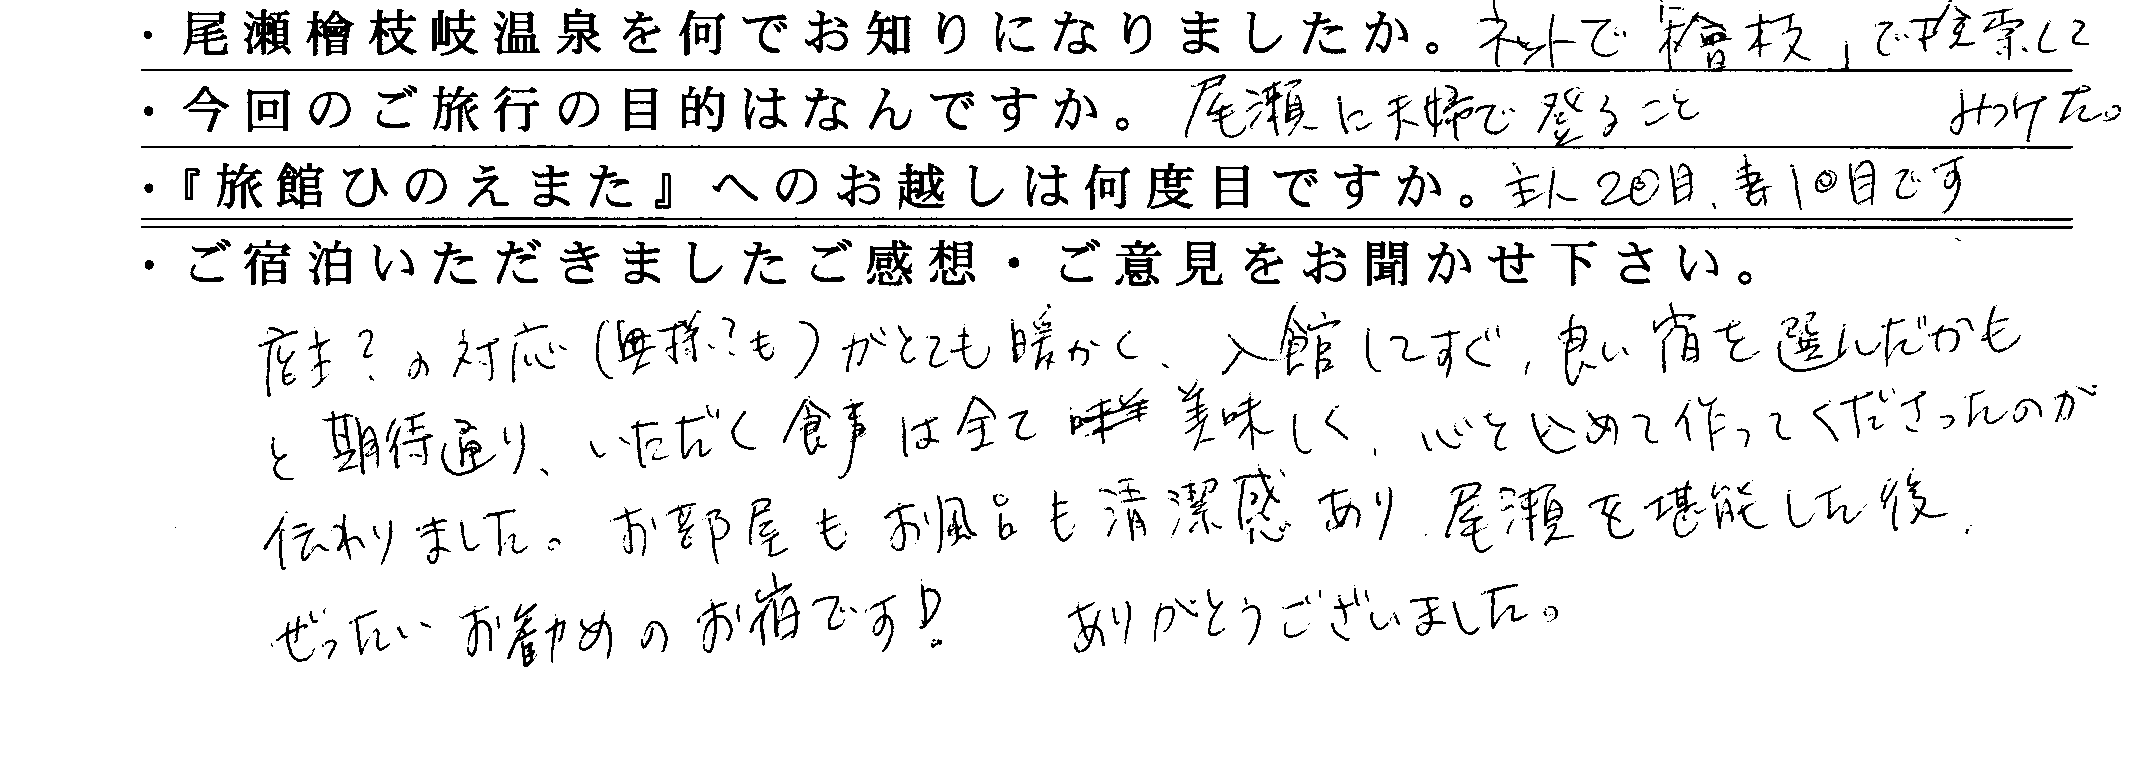 ・尾瀬檜枝岐温泉を何でお知りになりましたか。ネットで「檜枝」で検索して
みつけた。
・今回のご旅行の目的はなんですか。尾瀬に夫婦で登ること
・『旅館ひのえまた』へのお越しは何度目ですか。主人2回目、妻1回目です
・ご宿泊いただきましたご感想・ご意見をお聞かせ下さい。
店主?の対応(奥様?も)がとても暖かく、入館してすぐ、良い宿を選んだかも
と期待通り、いただく食事は全て美味しく、心を込めて作ってくださったのが
伝わりました。お部屋もお風呂も清潔感あり、尾瀬を堪能した後、
ぜったいお勧めのお宿です! ありがとうございました。